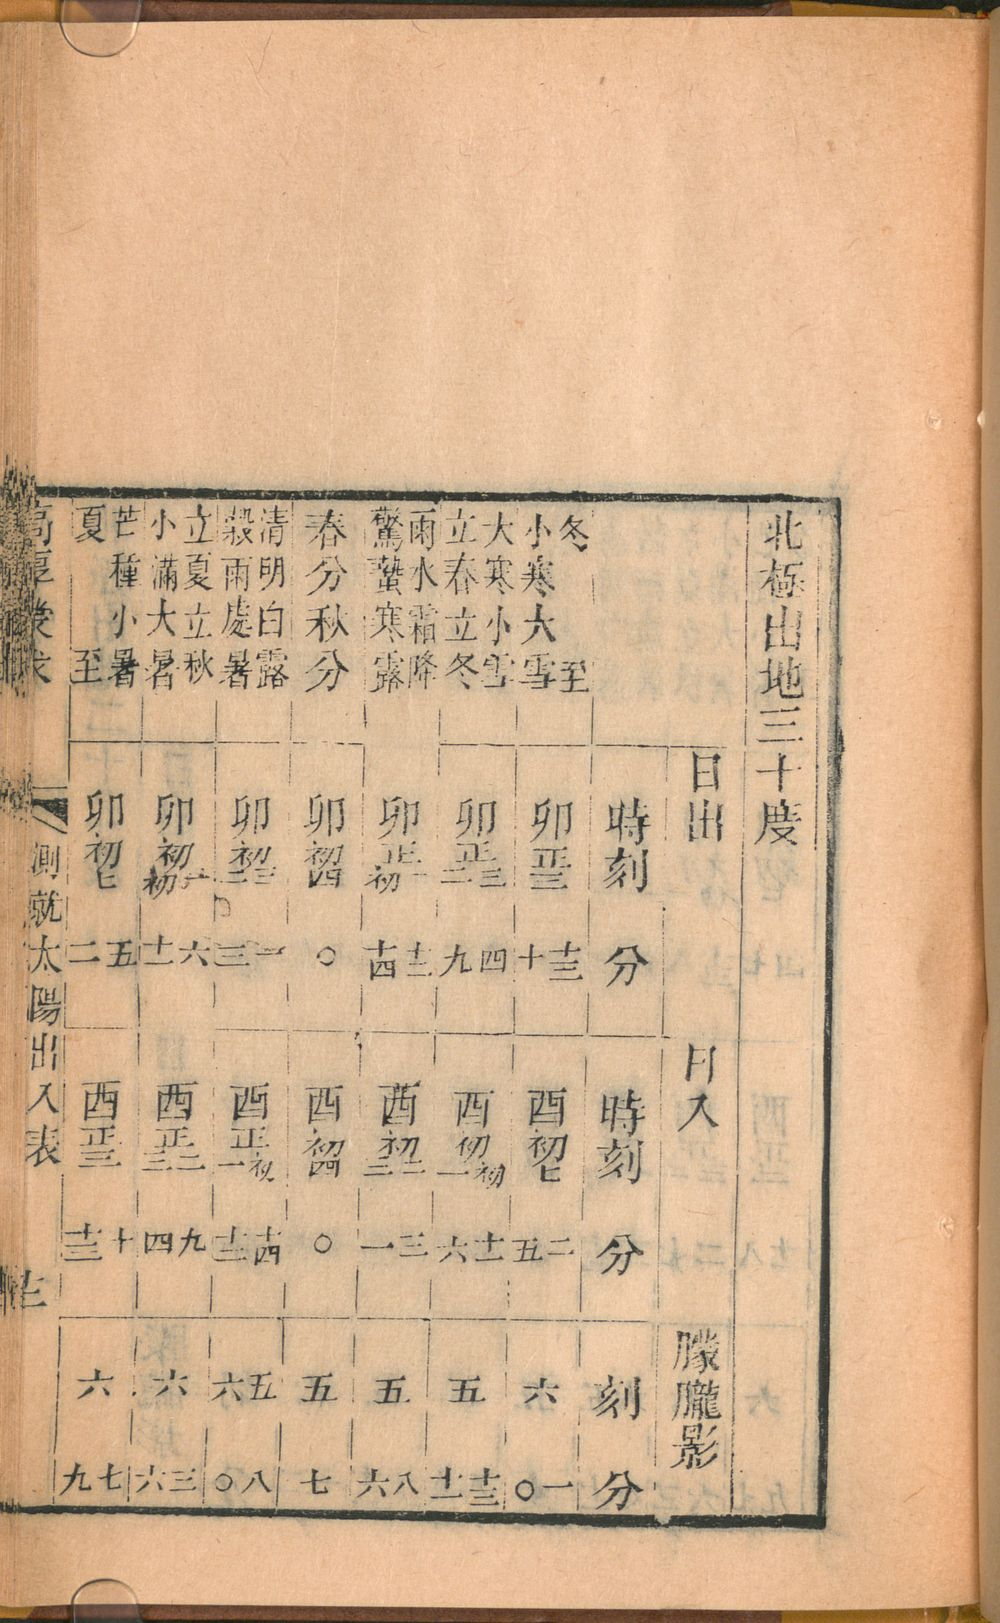 北極出地三十度
日出 日入 朦朧影
時刻 分 時刻 分 刻 分
冬至 卯正三 十三 酉初匕 二 六 一
小寒大雪 十 五 〇
大寒小雪 卯正三 四 酉初初 十一 五 十三
立春立冬 二 九 一 六 十一
雨水霜降 卯正一 十二 酉初二 三 五 八
驚蟄寒露 初 十四 三 一 六
春分秋分 卯初四 〇 酉初四 〇 五 七
清明白露 卯初三 一 酉正初 十四 五 八
穀雨處暑 二 三 一 十二 六 〇
立夏立秋 卯初一 六 酉正二 九 六 三
小滿大暑 初 十一 三 四 六
芒種小暑 卯初匕 五 酉正三 十 六 七
夏至 二 十三 九
高厚蒙求 測就太陽出入表